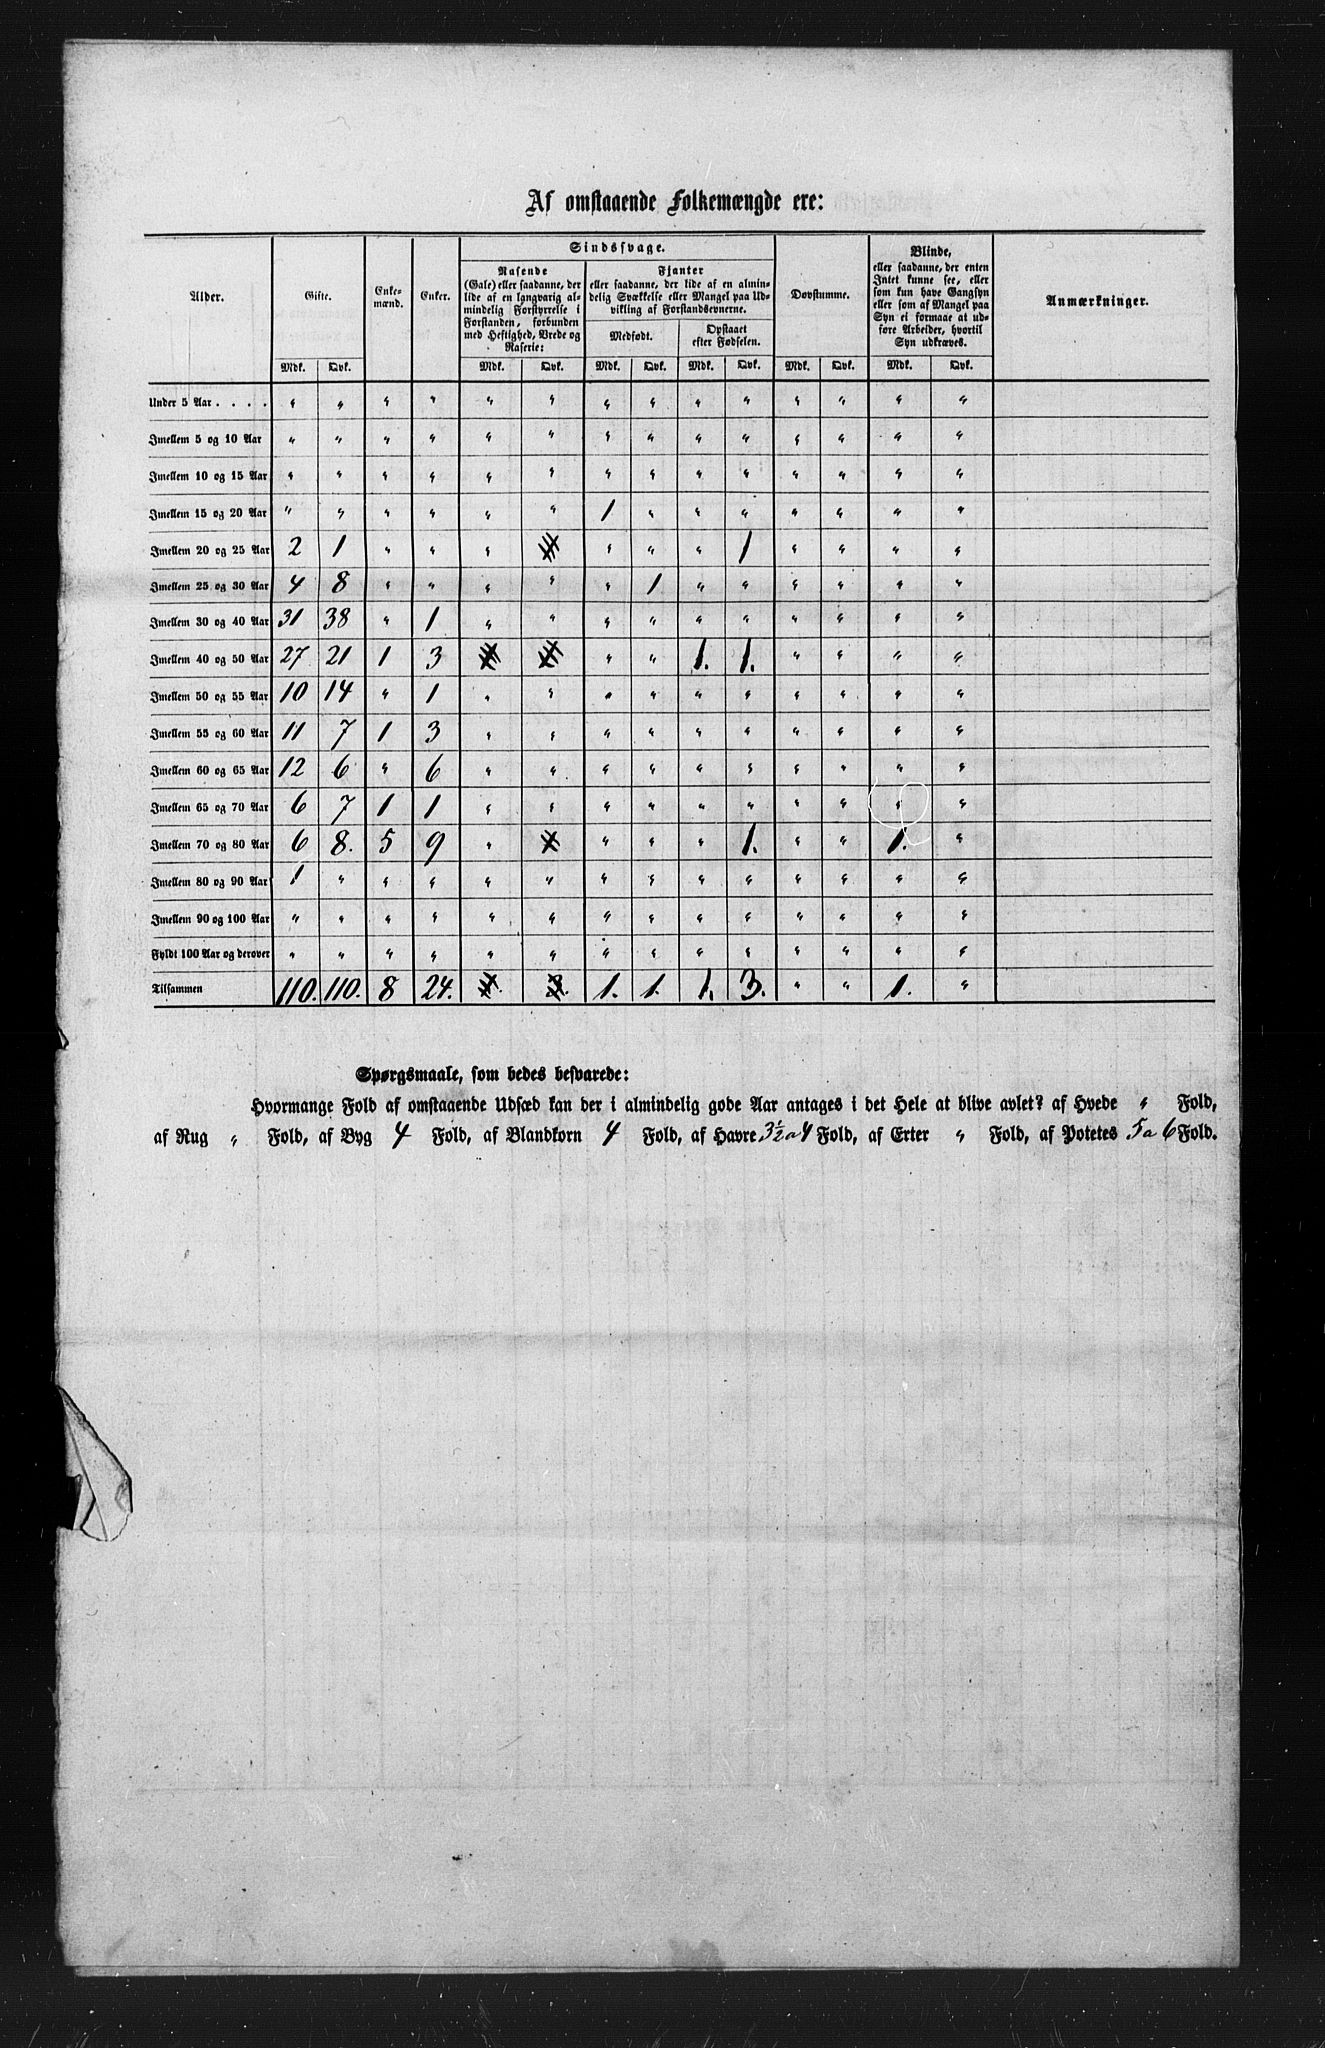 Af omstaaende Folkemængde ere:
Alder. Gifte. Enke-mænd. Enker. Sindssvage. Døvstumme. Blinde, Anmærkninger.
Rasende
(Gale) eller saadanne, der
lide af en langvarig al-
mindelig Forstyrrelse i
Forstanden, forbunden
med Heftighed, Vrede og
Raserie:
Fjanter
eller saadanne, der lide af en almin-
delig Svækkelse eller Mangel paa Ud-
vikling af Forstandsevnerne.
Medfødt. Opstaaet
efter Fødselen.
eller saadanne, der enten
Intet kunne see, eller
som kun have Gangsyn
eller som af Mangel paa
Syn ei formaae at ud-
føre Arbeider, hvortil
Syn udkræves.
Mdk. Qvk. Mdk. Qvk. Mdk. Qvk. Mdk. Qvk. Mdk. Qvk. Mdk. Qvk.
Under 5 Aar . . . . " " " " " " " " " " " " " "
Imellem 5 og 10 Aar " " " " " " " " " " " " " "
Imellem 10 og 15 Aar " " " " " " " " " " " " " "
Imellem 15 og 20 Aar " " " " " " 1 " " " " " " "
Imellem 20 og 25 Aar 2 1 " " " " " " 1 " " " "
Imellem 25 og 30 Aar 4 8 " " " " " 1 " " " " " "
Imellem 30 og 40 Aar 31 38 " 1 " " " " " " " " " "
Imellem 40 og 50 Aar 27 21 1 3 " " 1. 1. " " " "
Imellem 50 og 55 Aar 10 14 " 1 " " " " " " " " " "
Imellem 55 og 60 Aar 11 7 1 3 " " " " " " " " " "
Imellem 60 og 65 Aar 12 6 " 6 " " " " " " " " " "
Imellem 65 og 70 Aar 6 7 1 1 " " " " " " " " " "
Imellem 70 og 80 Aar 6 8. 5 9 " " " " 1. " " 1. "
Imellem 80 og 90 Aar 1 " " " " " " " " " " " " "
Imellem 90 og 100 Aar " " " " " " " " " " " " " "
Fyldt 100 Aar og derover " " " " " " " " " " " " " "
Tilsammen 110. 110. 8 24. 1. 1. 1. 3. " " 1. "
Spørgsmaale, som bedes besvarede:
Hvormange Fold af omstaaende Udsæd kan der i almindelig gode Aar antages i det Hele at blive avlet? af Hvede " Fold,
af Rug " Fold, af Byg 4 Fold, af Blandkorn 4 Fold, af Havre 3½ a 4 Fold, af Erter " Fold, af Potetes 5 a 6 Fold.